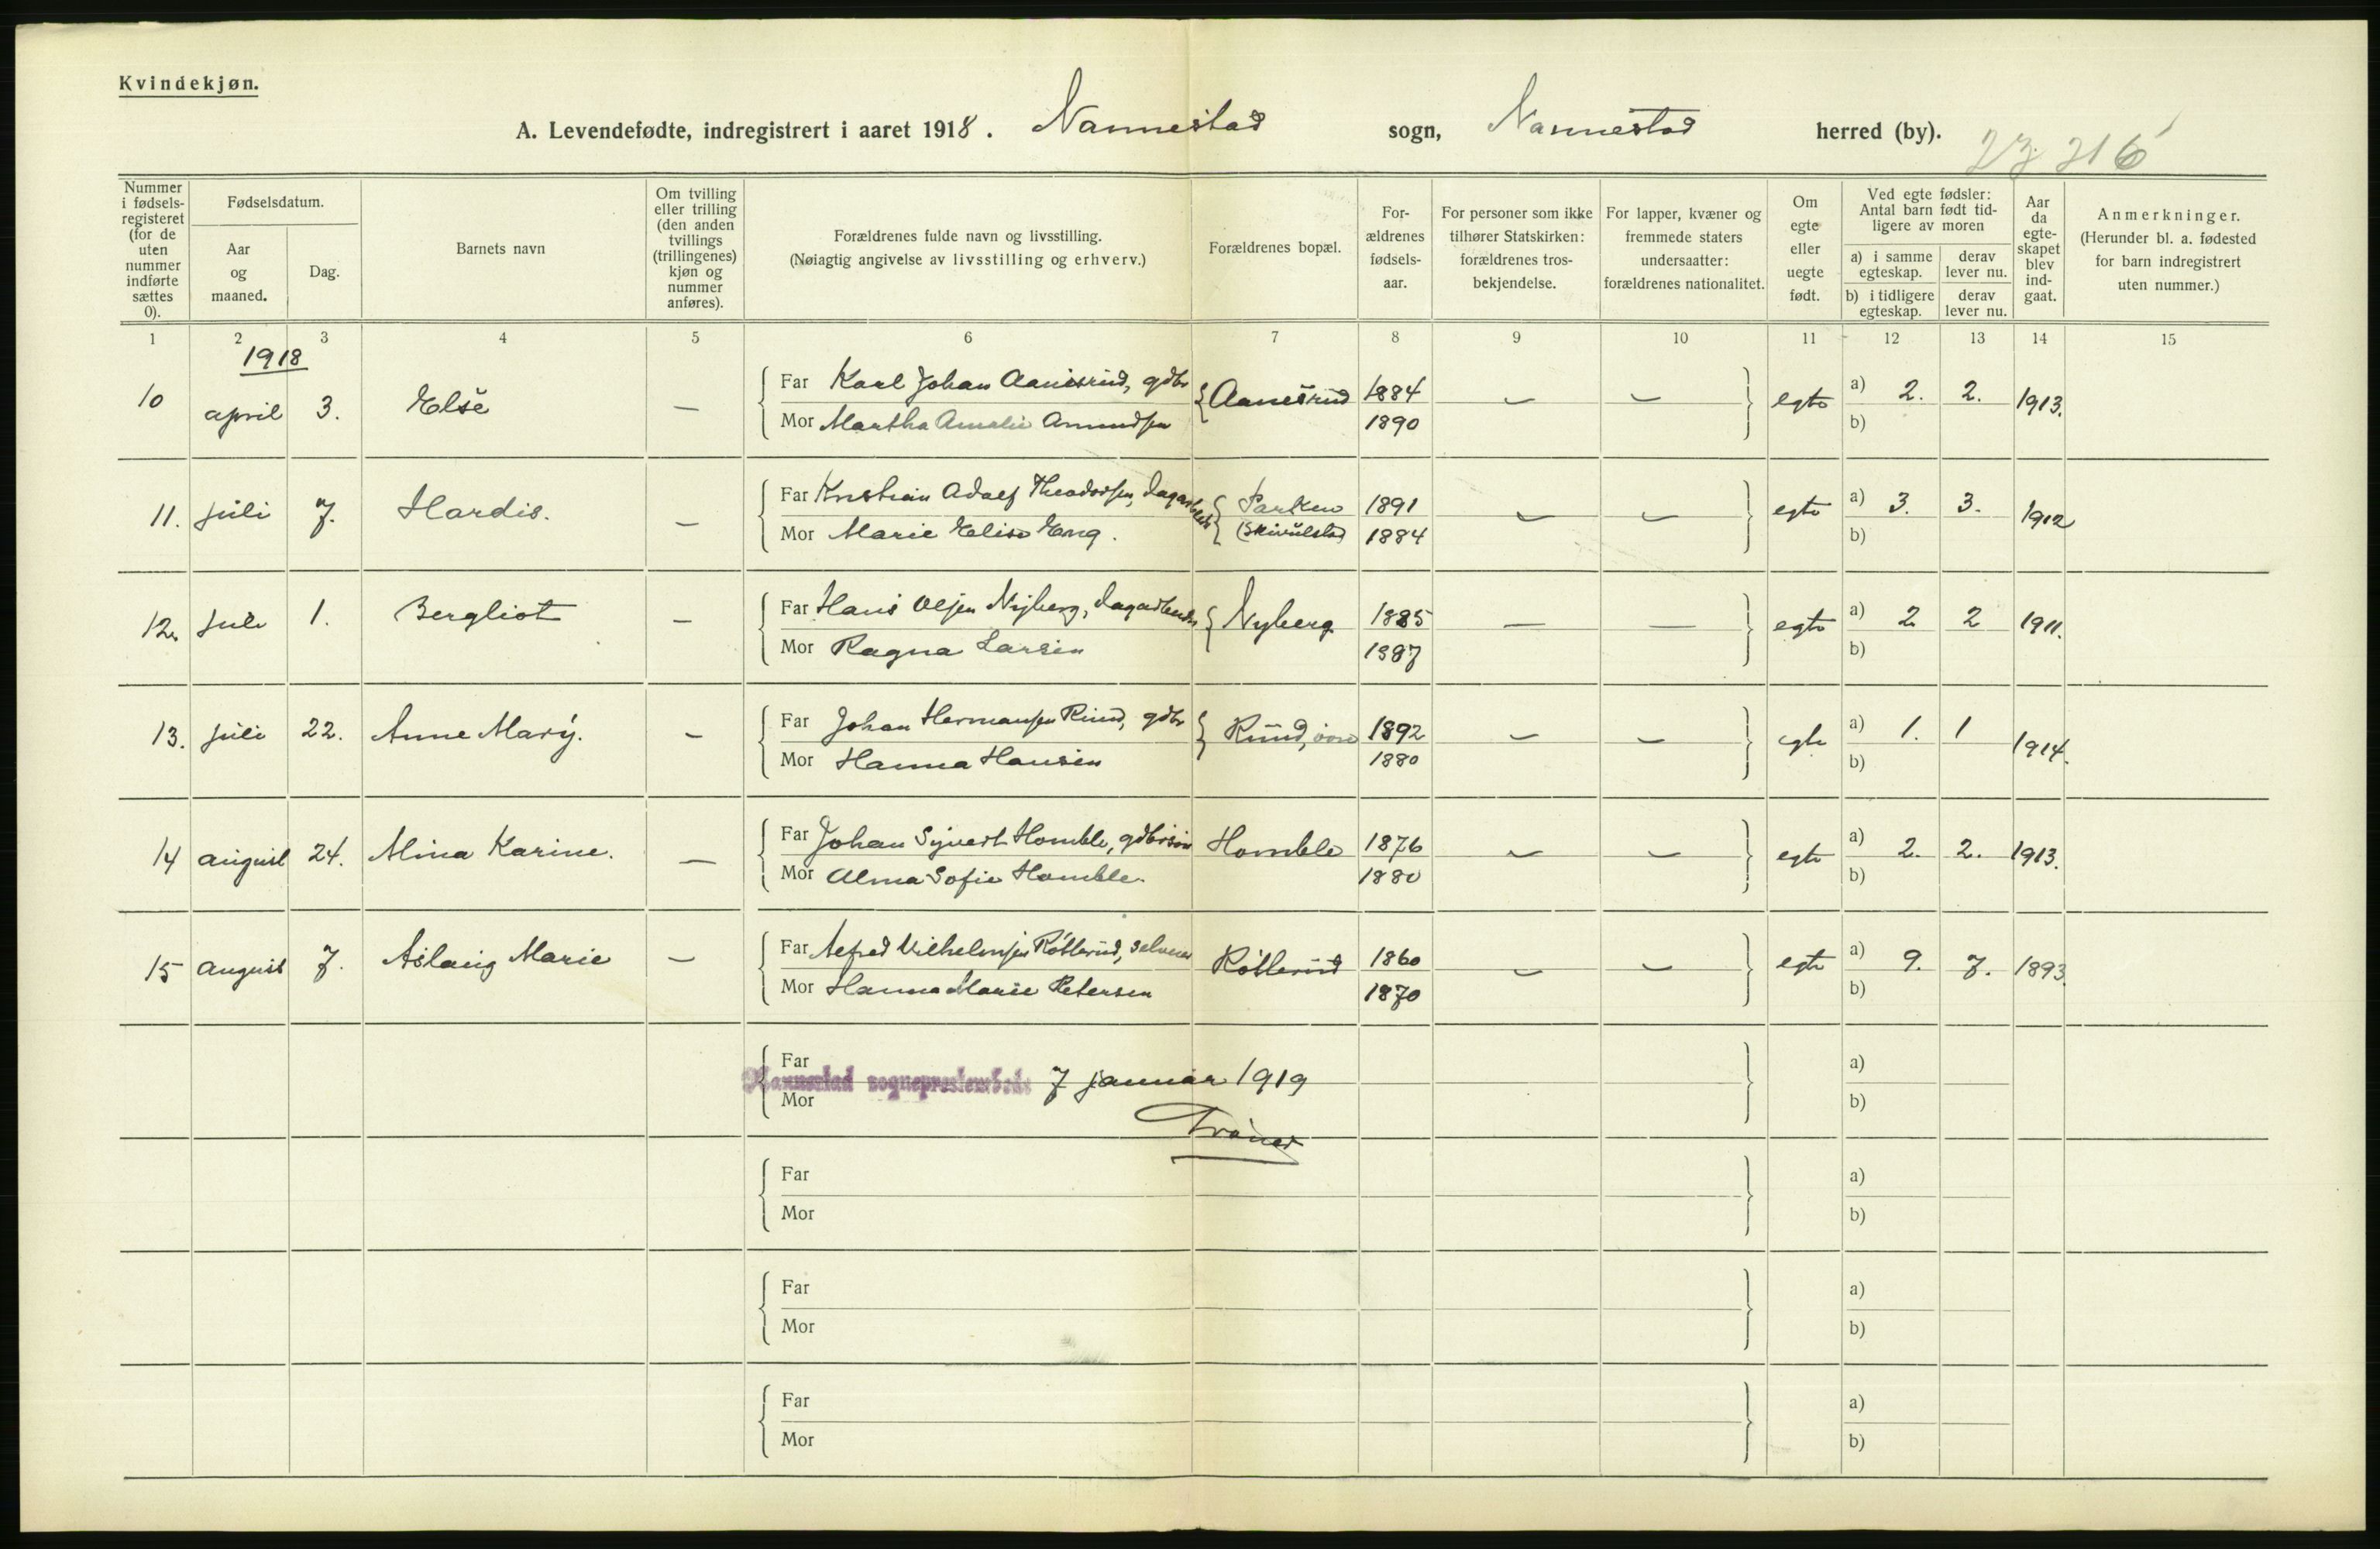 Kvindekjøn.
A. Levendefødte, indregistrert i aaret 1918. Nannestad sogn, Nannestad herred (by).
Nummer i fødsels-registeret (for de uten nummer indførte sættes 0).
Fødselsdatum.
Aar og maaned.
Dag.
Barnets navn
Om tvilling eller trilling (den anden tvillings (trillingenes) kjøn og nummer anføres).
Forældrenes fulde navn og livsstilling.
(Nøiagtig angivelse av livsstilling og erhverv.)
Forældrenes bopæl.
For-ældrenes fødsels-aar.
For personer som ikke tilhører Statskirken: forældrenes tros-bekjendelse.
For lapper, kvæner og fremmede staters undersaatter: forældrenes nationalitet.
Om egte eller uegte født.
Ved egte fødsler: Antal barn født tid-ligere av moren
a) i samme egteskap.
derav lever nu.
b) i tidligere egteskap.
derav lever nu.
Aar da egte-skapet blev ind-gaat.
Anmerkninger.
(Herunder bl. a. fødested for barn indregistrert uten nummer.)
1 2 3 4 5 6 7 8 9 10 11 12 13 14 15
1918
10 april 3. Else — Far Karl Johan Aanesrud, gdbr Aanesrud 1884 — — egte a) 2. 2. 1913.
Mor Martha Amalie Amundsen 1890 b)
11. juli 7. Hardis. — Far Kristian Adolf Theodorsen, dagarbeider Parken 1891 — — egte a) 3. 3. 1912
Mor Marie Elise Eng. 1884 b)
12. juli 1. Bergliot — Far Hans Olsen Nyberg, dagarbeider Nyberg 1885 — — egte a) 2 2 1911.
Mor Ragna Larsen 1887 b)
13. juli 22. Anne Mary. — Far Johan Hermansen Ruud, gdbr Ruud, øvre 1892 — — egte a) 1. 1 1914.
Mor Hanna Hansen 1880 b)
14 august 24. Alma Karine. — Far Johan Syvert Homble, Homble 1876 — — egte a) 2. 2. 1913.
Mor Alma Sofie Homble. 1880 b)
15 august 7. Aslaug Marie — Far Alfred Vilhelmsen Rotterud, selveier Rotterud 1860 — — egte a) 9. 7. 1893.
Mor Hanna Marie Petersen 1870 b)
Far a)
Nannestad sogneprestembede 7 januar 1919
Mor b)
Far a)
Mor b)
Far a)
Mor b)
Far a)
Mor b)